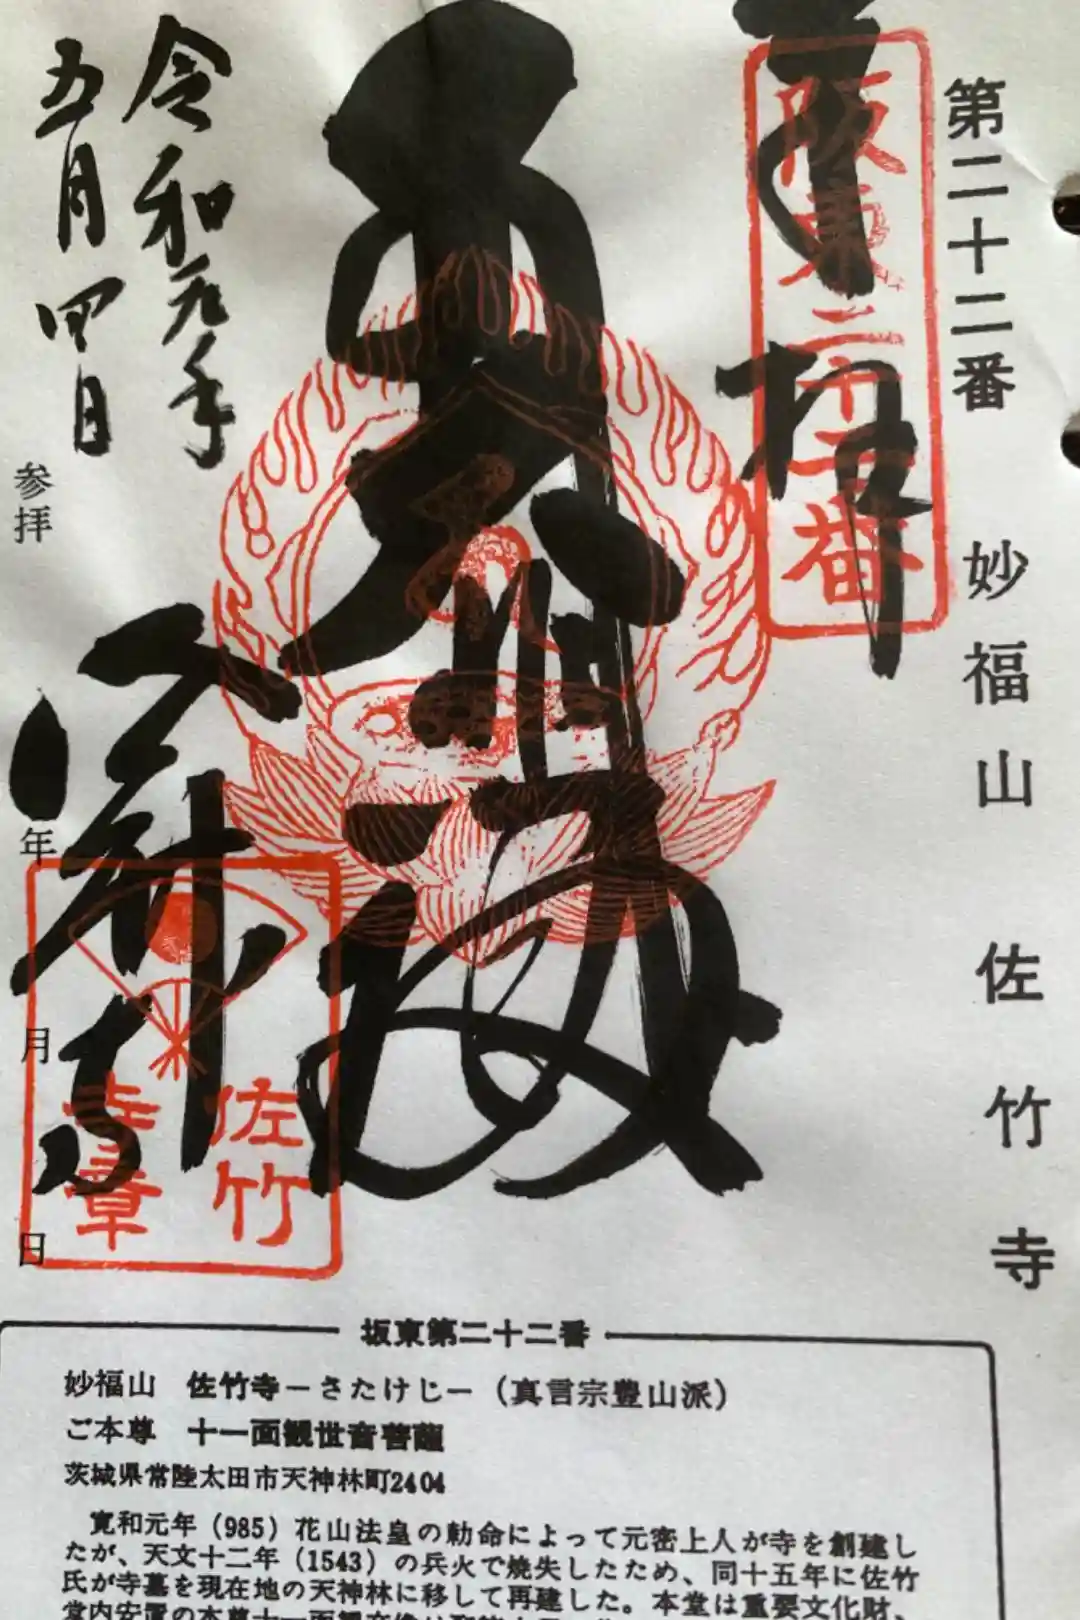 第二十二番 妙福山 佐竹寺
奉拝
阪東二十二番
大悲殿
佐竹寺
令和元年
五月四日
参拝
年 月 日
佐竹
寺章
坂東第二十二番
妙福山 佐竹寺－さたけじ－（真言宗豊山派）
ご本尊 十一面観世音菩薩
茨城県常陸太田市天神林町2404
寛和元年（985）花山法皇の勅命によって元密上人が寺を創建し
たが、天文十二年（1543）の兵火で焼失したため、同十五年に佐竹
氏が寺墓を現在地の天神林に移して再建した。本堂は重要文化財、
堂内安置の本尊十一面観音像は